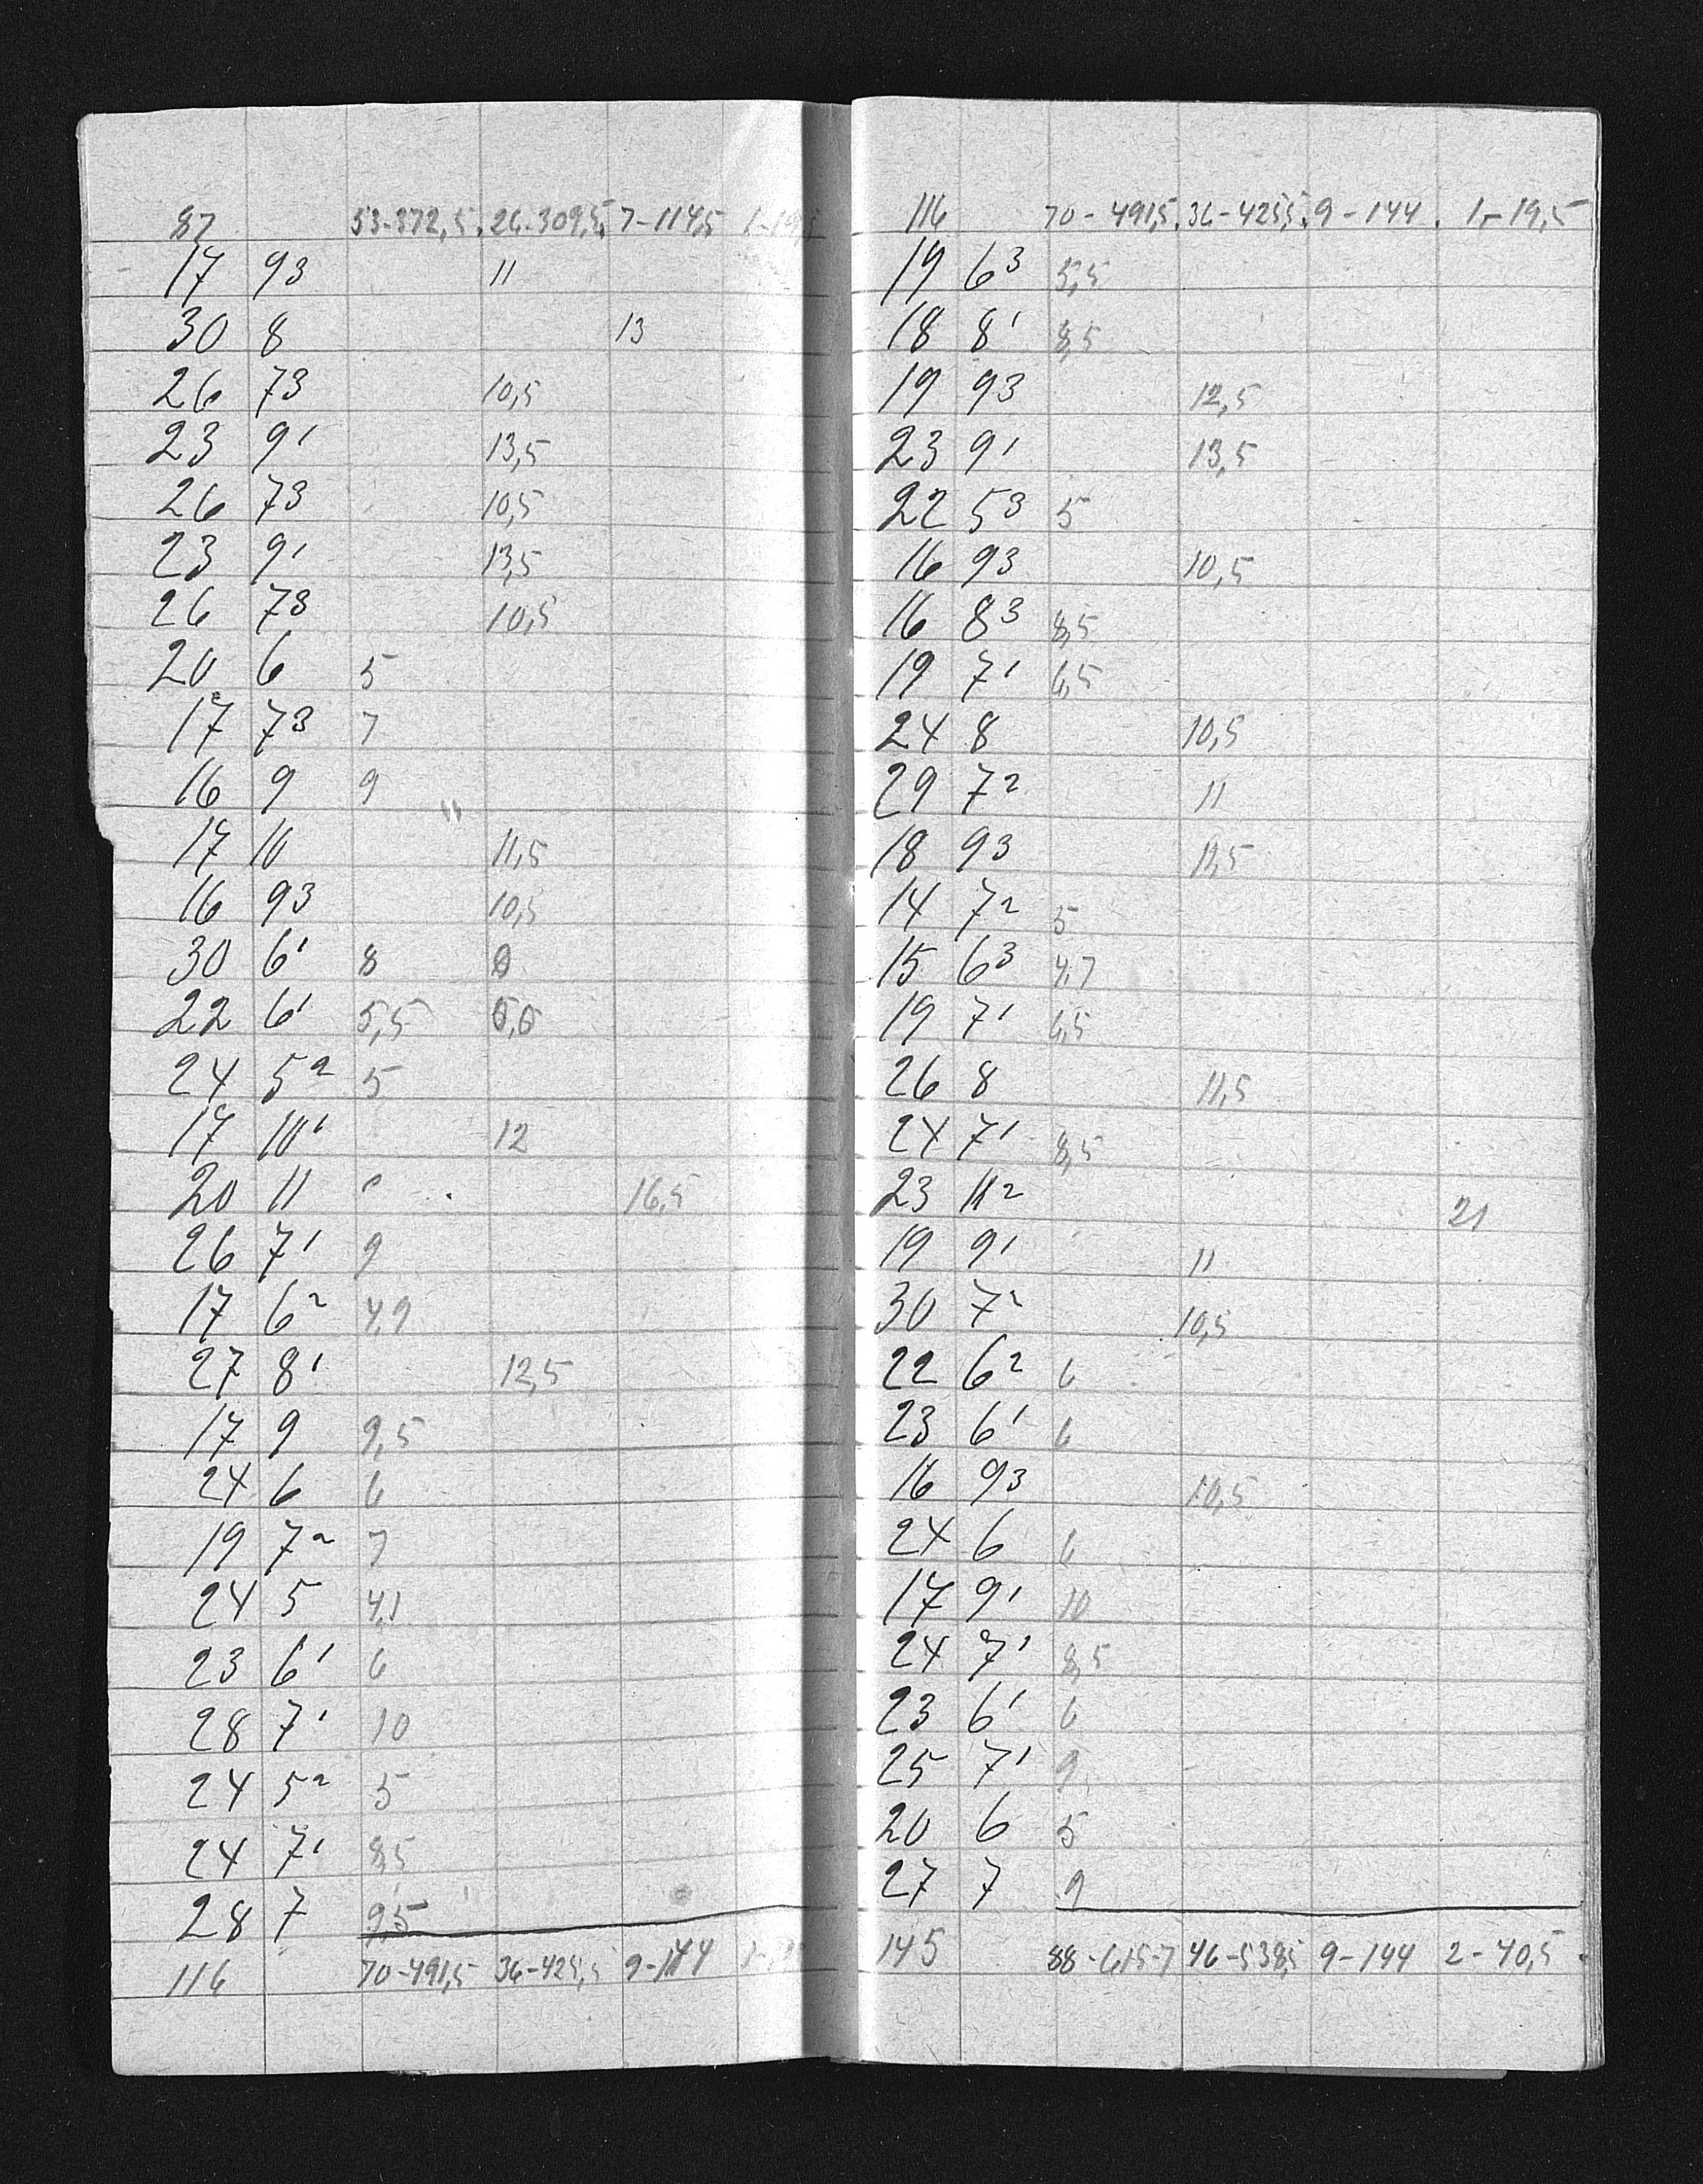 87 53-372,5. 26-309,5. 7-114,5 1-19,5
17 9³ 11
30 8 13
26 7³ 10,5
23 9¹ 13,5
26 7³ 10,5
23 9¹ 13,5
26 7³ 10,5
20 6 5
17 7³ 7
16 9 9
17 10 11,5
16 9³ 10,5
30 6¹ 8
22 6¹ 5,5
24 5² 5
17 10¹ 12
20 11 16,5
26 7¹ 9
17 6² 4,9
27 8¹ 12,5
17 9 9,5
24 6 6
19 7² 7
24 5 4,1
23 6¹ 6
28 7¹ 10
24 5² 5
24 7¹ 8,5
28 7 9,5
116 70-491,5 36-425,5 9-144
116 70-491,5. 36-425,5. 9-144. 1-19,5
19 6³ 5,5
18 8¹ 8,5
19 9³ 12,5
23 9¹ 13,5
22 5³ 5
16 9³ 10,5
16 8³ 8,5
19 7¹ 6,5
24 8 10,5
29 7² 11
18 9³ 12,5
14 7² 5
15 6³ 4,7
19 7¹ 6,5
26 8 11,5
24 7¹ 8,5
23 11² 21
19 9¹ 11
30 7² 10,5
22 6² 6
23 6¹ 6
16 9³ 10,5
24 6 6
17 9¹ 10
24 7¹ 8,5
23 6¹ 6
25 7¹ 9
20 6 5
27 7 9
145 88-615-7 46-538,5 9-144 2-40,5